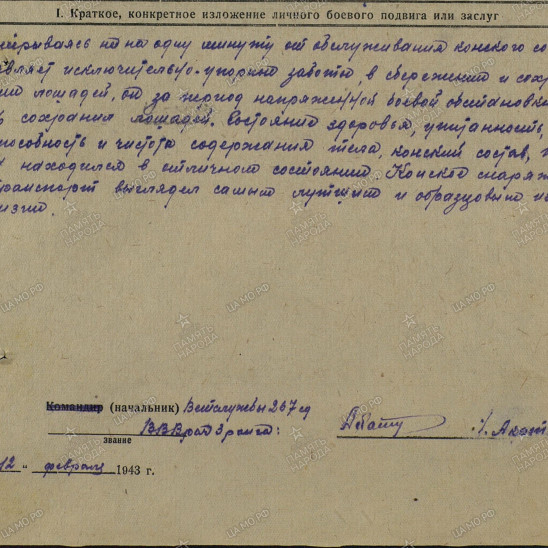 I. Краткое, конкретное изложение личного боевого подвига или заслуг
ни на одну минуту от обслуживания конского со
являет исключительно-упорно заботы, в сбережении и сохр
лошадей, он за период напряженной боевой обстановки
сохранил лошадей. Состояние здоровья, упитанность,
способность и чистота содержания тела, конский состав,
находился в отличном состоянии. Конское снаряж
транспорт выглядел самым лутшим и образцовым
визии.
Командир (начальник) Ветслужбы 267 сд
ВВВрач 3 ранга:
звание
12 " февраля 1943 г.